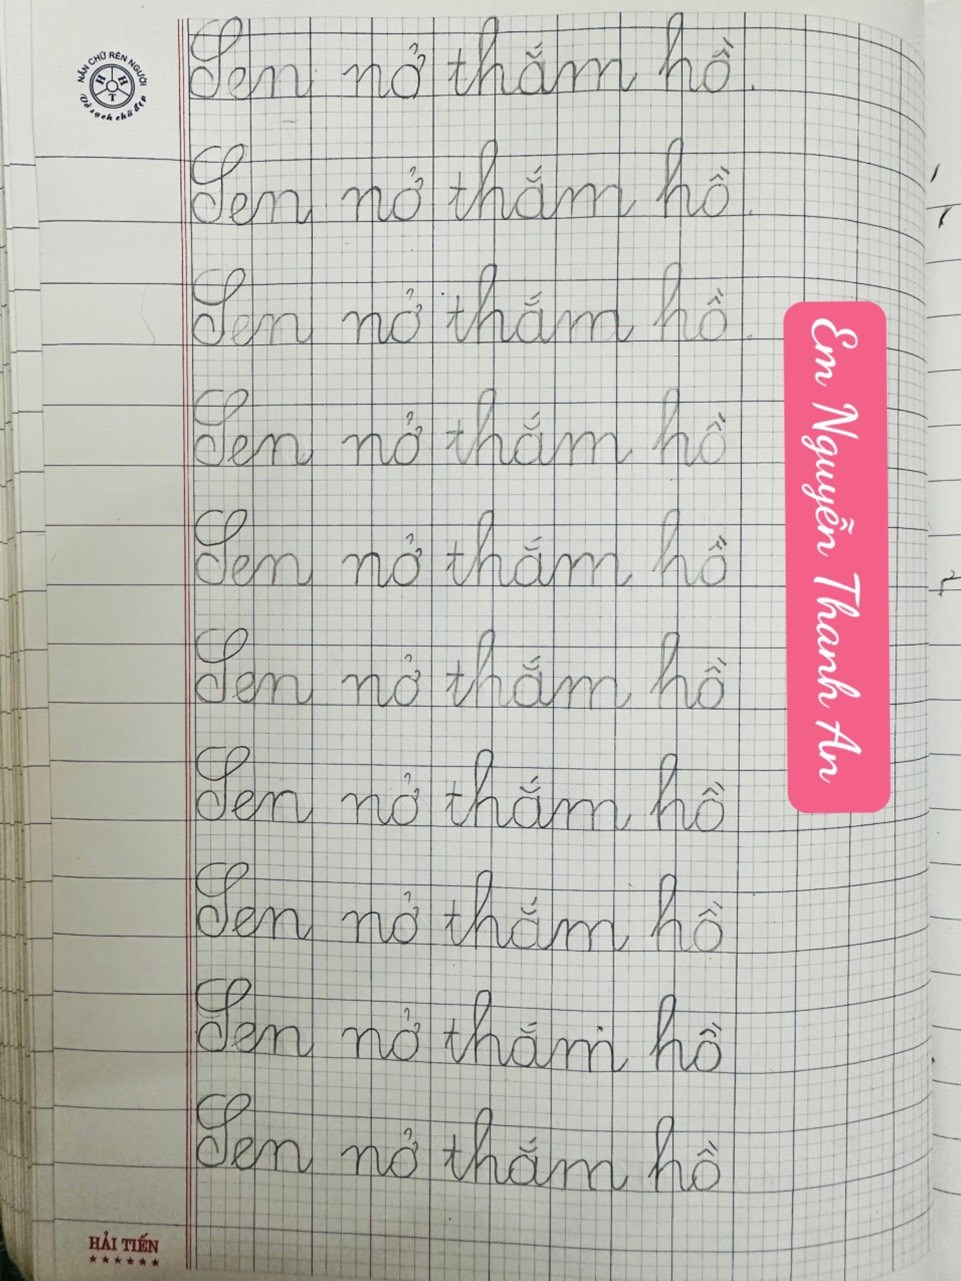 NẮN CHỮ RÈN NGƯỜI
H H T
Vở sạch chữ đẹp
Sen nở thắm hồ.
Sen nở thắm hồ.
Sen nở thắm hồ.
Sen nở thắm hồ
Sen nở thắm hồ
Sen nở thắm hồ
Sen nở thắm hồ
Sen nở thắm hồ
Sen nở thắm hồ
Sen nở thắm hồ
Em Nguyễn Thanh An
HẢI TIẾN